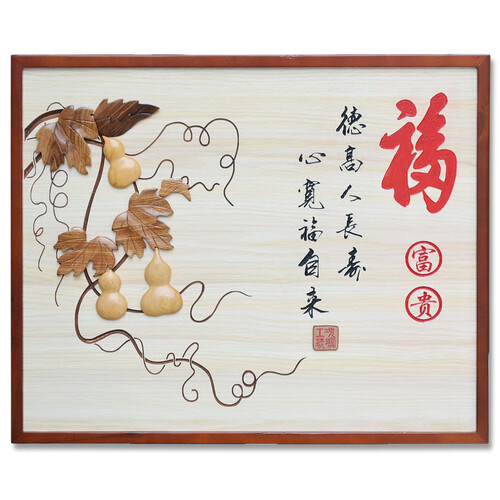 福
富
貴
德高人長壽
心寬福自來